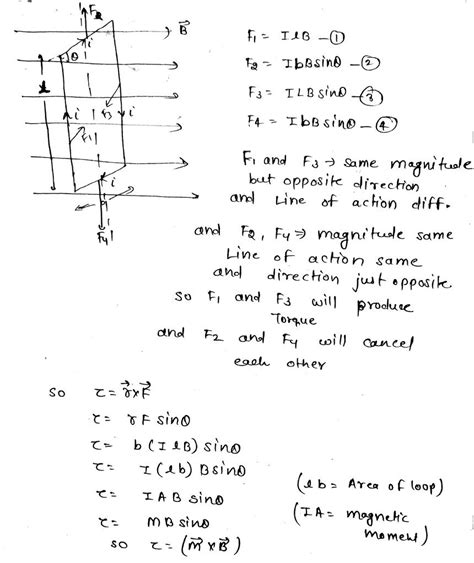 F₂
B⃗
i
θ
l
i
F₃
i
F₁
i
F₄
F₁ = IlB —①
F₂ = IbBsinθ —②
F₃ = ILBsinθ —③
F₄ = IbBsinθ —④
F₁ and F₃ → same magnitude
but opposite direction
and Line of action diff.
and F₂, F₄ ⇒ magnitude same
Line of action same
and direction just opposite
so F₁ and F₃ will produce
Torque
and F₂ and F₄ will cancel
each other
so τ = r⃗×F⃗
τ = rFsinθ
τ = b(IlB)sinθ
τ = I(lb)Bsinθ
(lb = Area of loop)
τ = IABsinθ
(IA = magnetic
moment)
τ = MBsinθ
so τ = (M⃗×B⃗)